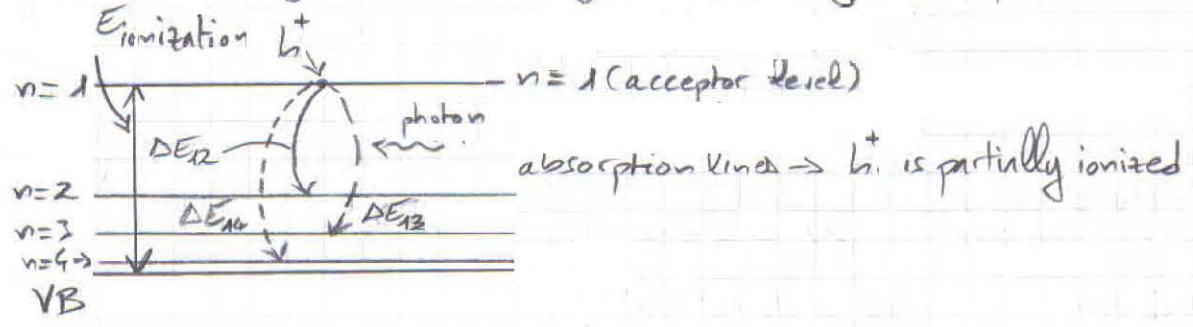 E ionization h⁺
n=1 n=1 (acceptor level)
photon
ΔE₁₂
absorption lines → h⁺ is partially ionized
n=2
ΔE₁₄ ΔE₁₃
n=3
n=4→
VB